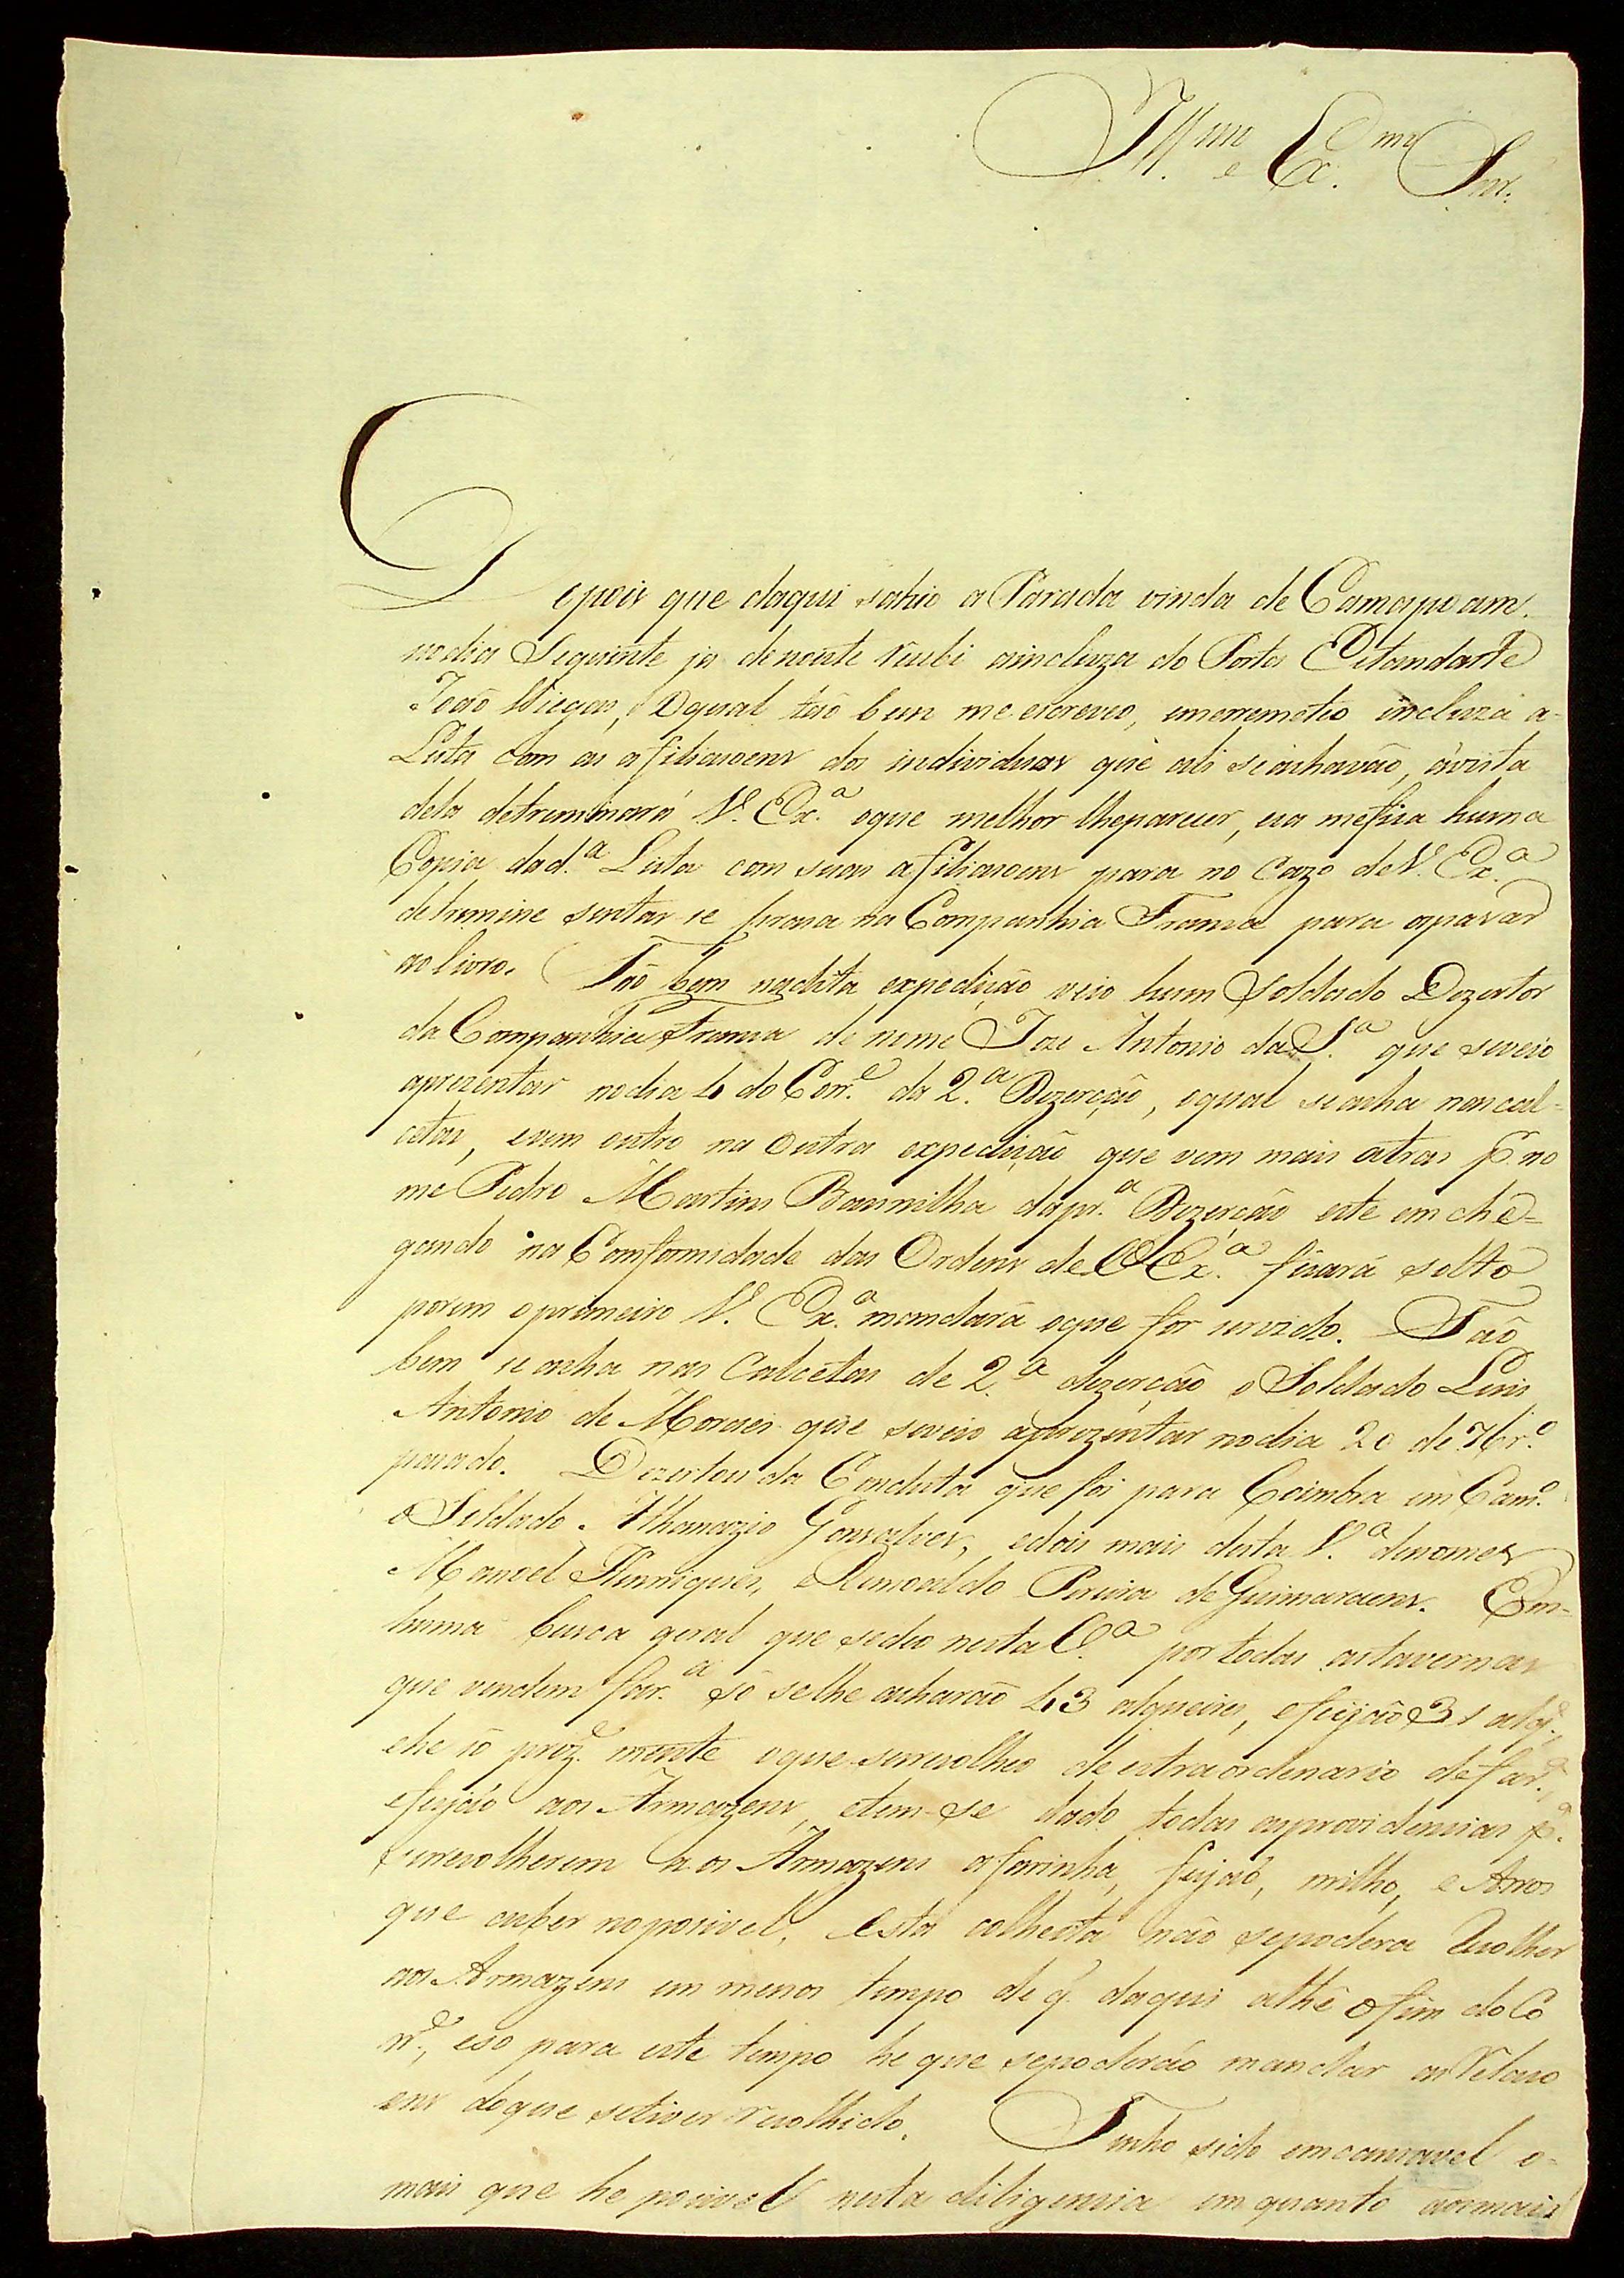 Ill.mo e Ex.mo Snr.
Depois que daqui sahio a Parada vinda de Camapoam,
no dia Seguinte ja de noute recebi a incluza do Porta Estandarte
João Viegas, O qual tão bem me escreveo, em erremoteo incluza a
Lista com as afiliasoens dos individuos que ali se achavão, á vista
dela detreminará V. Ex.ª o que melhor lhe parecer, ca me fica huma
Copia da d.ª Lista com suas afiliasoens para no Cazo de V. Ex.ª
detremine sentar se prasa na Companhia Franca para apasar
ao livro. Tão bem na dita expedição veio hum Soldado Dezertor
da Companhia Franca de nome Joze Antonio da S.ª que se veio
aprezentar no dia 4 do Corr.e da 2.ª Dezerção, o qual se acha nas cal=
cetas, e vem outro na Outra expedição que vem mais atras p.r no
me Pedro Martins Baunilha da pr.ª Dezerção este em che=
gando na Comformidade das Ordens de V. Ex.ª ficará solto
porem o primeiro V. Ex.ª mandará o que for servido. Tão
bem se acha nas Calcetas de 2.ª dezerção o Soldado Luis
Antonio de Moraes que se veio aprezentar no dia 20 de 7br.o
pasado. Dezertou da Conduta que foi para Coimbra em Cam.o
o Soldado Athanazio Gonsalves, e dois mais desta V.ª de nomes
Manoel Henriques, e Rumoaldo Pereira de Guimaraens. Em
huma busca geral que se deo nesta V.ª por todas as tavernas
que vendem far.ª só se lhe acharão 43 alqueires, e feijão 31 alq.s,
e he só prez.e mente o que se arecolheo de extraordenario de far.ª,
e feijão aos Armazens, e tem-se dado todas as providencias p.ª
se arecolherem aos Armazens a farinha, feijão, milho, e Arros
que couber no posivel, esta colheita não se poderá Recolher
aos Armazens em menos tempo de q. daqui athé o fim do Co
rr.e, e só para este tempo he que se poderão mandar as Relaso
ens do que se tiver recolhido. Tenho sido emcansavel o
mais que he posivel nesta diligencia em quanto aos mais